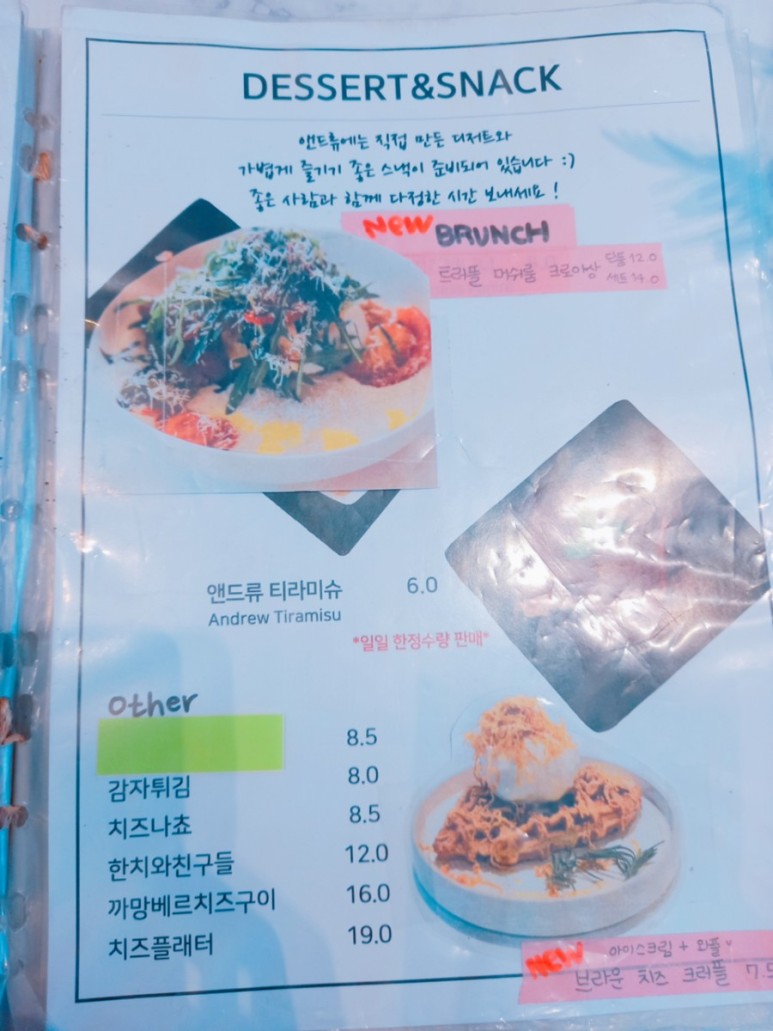 DESSERT&SNACK
앤드류에는 직접 만든 디저트와
가볍게 즐기기 좋은 스낵이 준비되어 있습니다 :)
좋은 사람과 함께 다정한 시간 보내세요!
NEW BRUNCH
트러플 머쉬룸 크로아상 단품 12.0
세트 14.0
앤드류 티라미슈 6.0
Andrew Tiramisu
*일일 한정수량 판매*
Other
8.5
감자튀김 8.0
치즈나쵸 8.5
한치와친구들 12.0
까망베르치즈구이 16.0
치즈플래터 19.0
NEW 아이스크림 + 와플
브라운 치즈 크러플